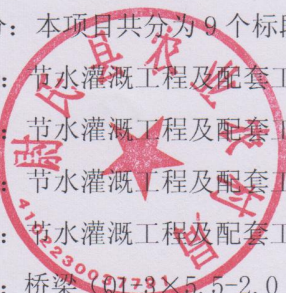 ：本项目共分为 9 个标段
：节水灌溉工程及配套工
：节水灌溉工程及配套工
：节水灌溉工程及配套工
：节水灌溉工程及配套工
：桥梁（QL-3×5.5-2.0
尉氏县农业农村局